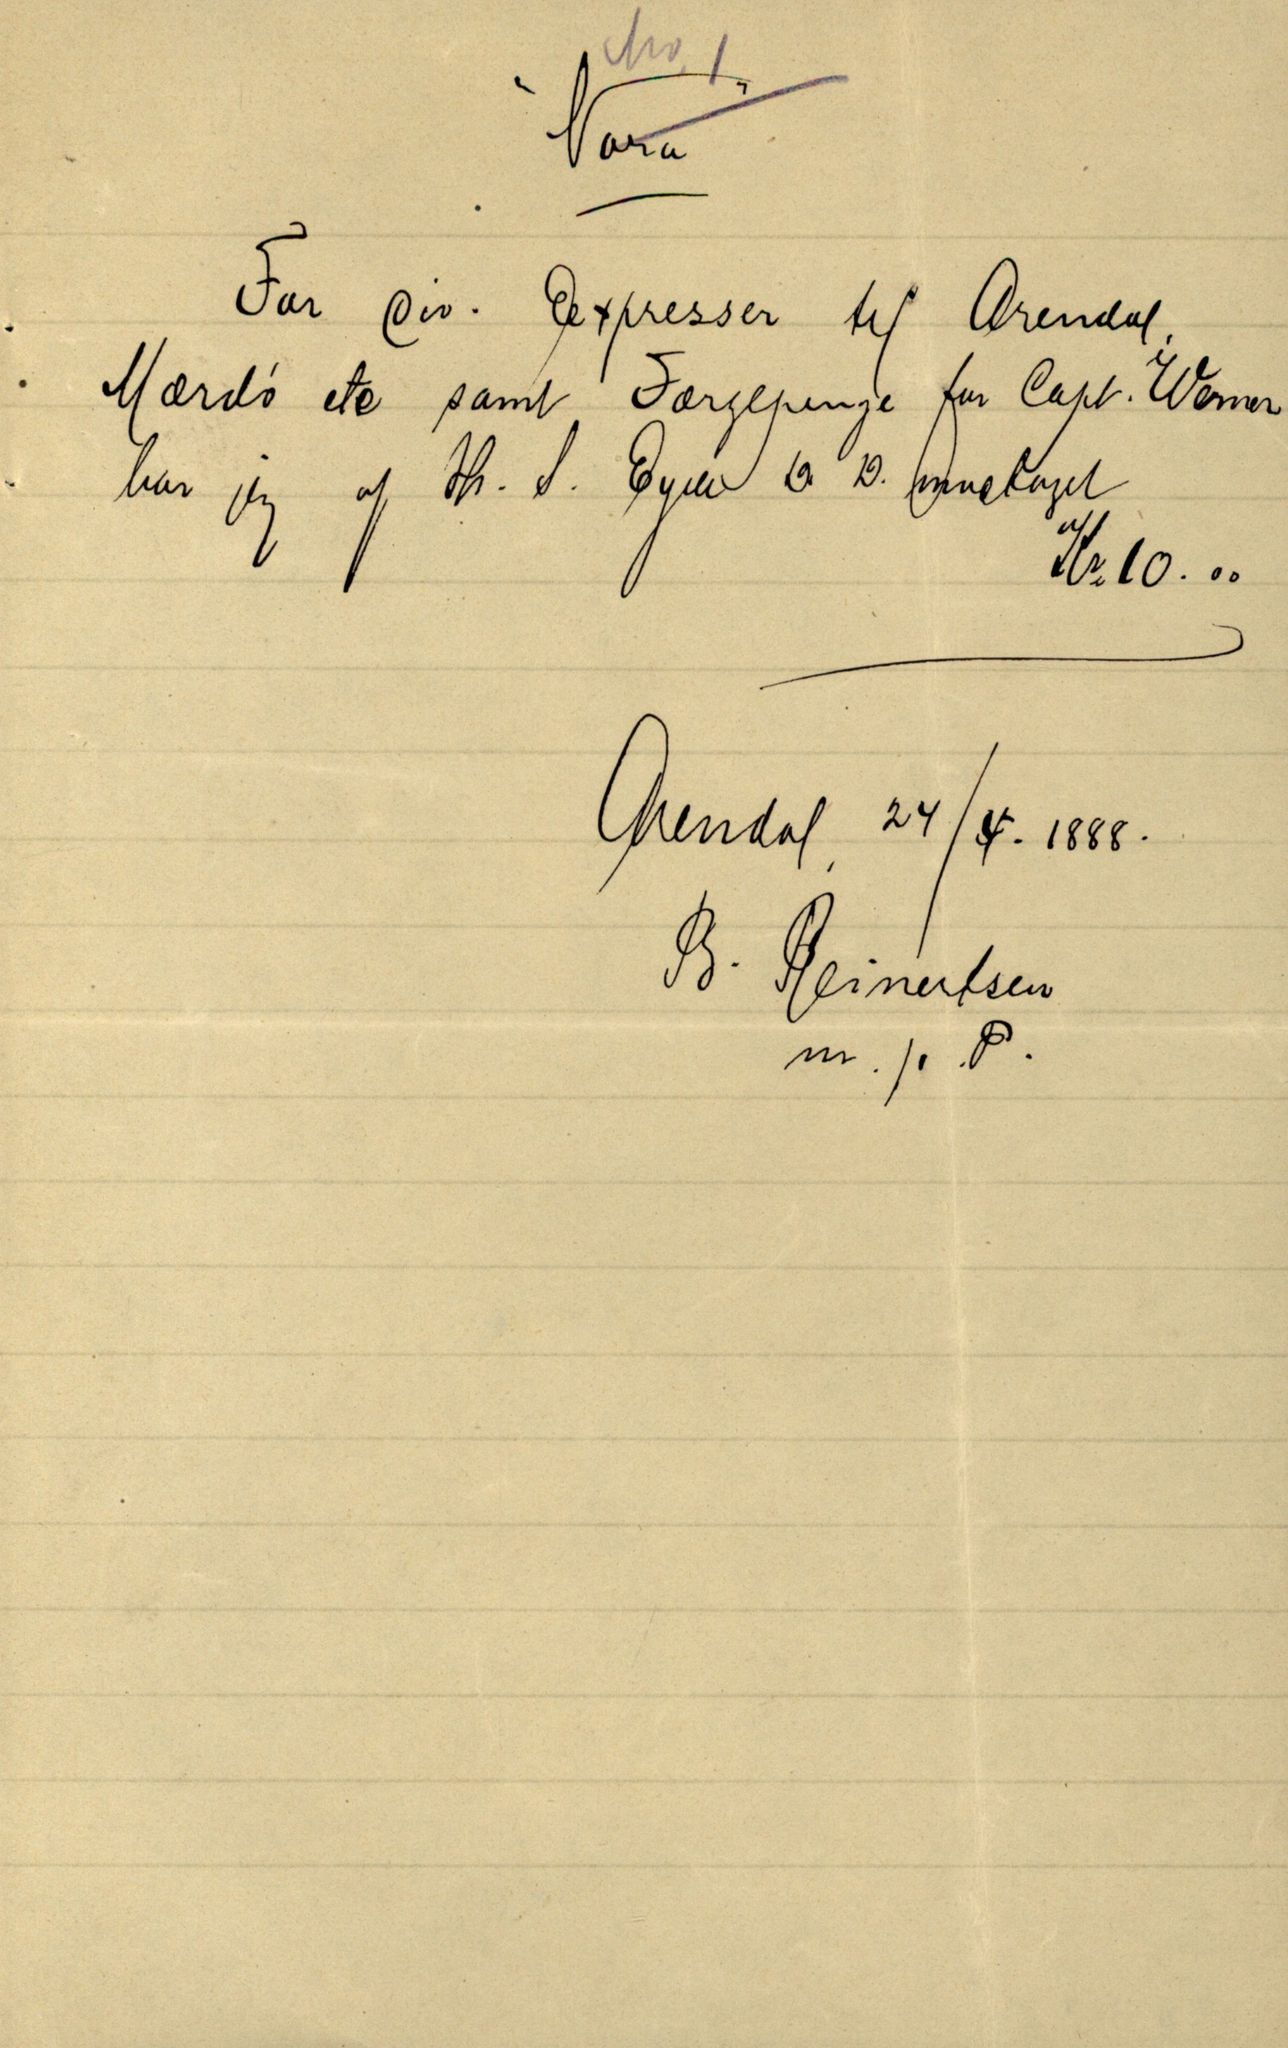 No. 1
"Nora"
For div. Expresser til Arendal,
Mærdö etc samt Færgepenge for Capt. Werner
har jeg af Hr. S. Eyde D. D. modtaget
Kr. 10. oo
Arendal, 24/4. 1888.
B. Reinertsen
m. p. P.